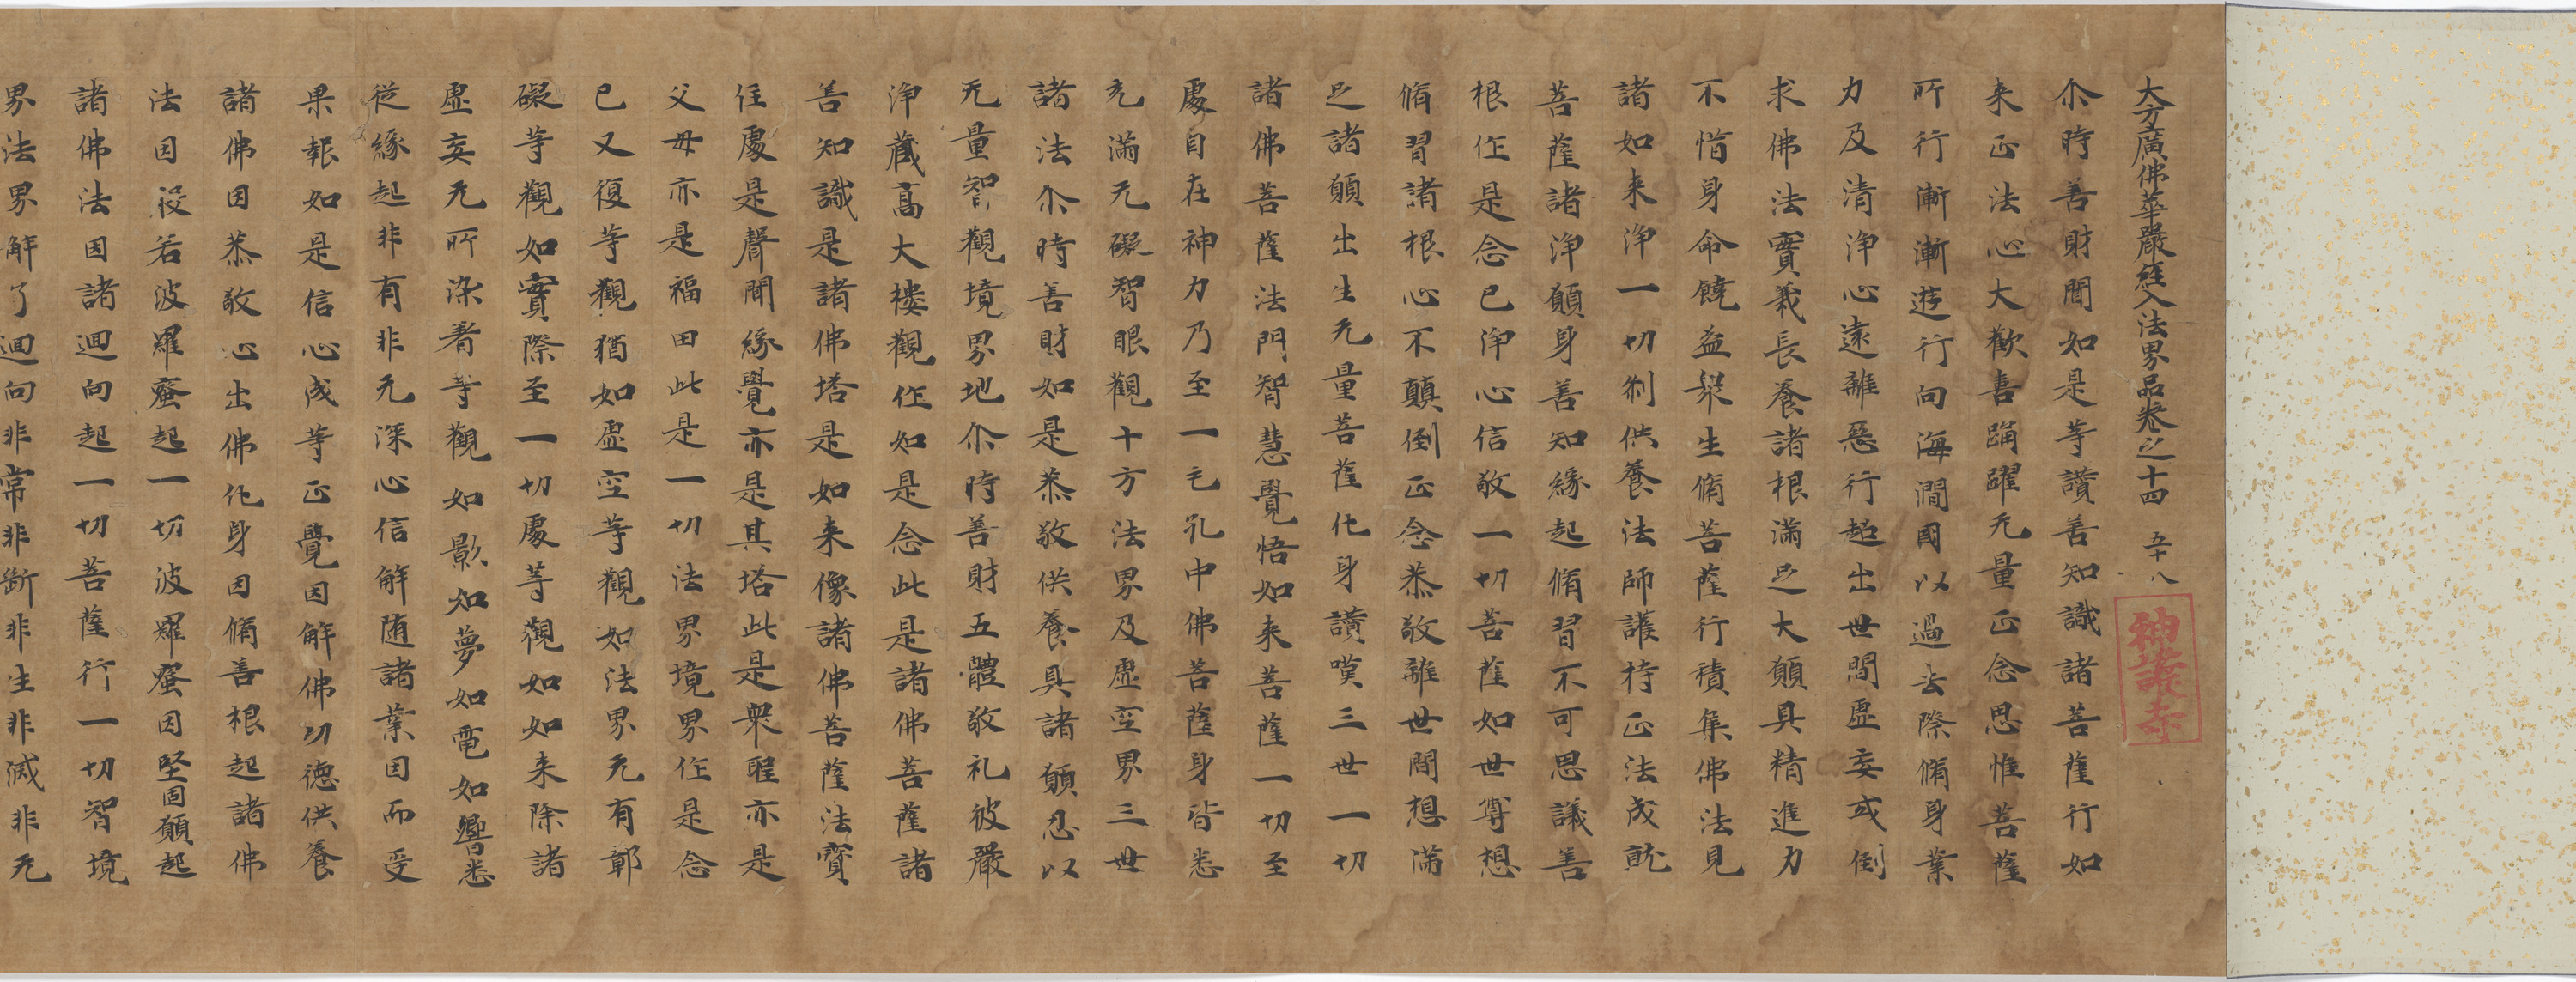 大方廣佛華嚴經入法界品卷之十四 五十八
神護寺
尒時善財聞如是等讃善知識諸菩薩行如
来正法心大歡喜踊躍无量正念思惟菩薩
所行漸漸遊行向海澗國以過去際脩身業
力及清淨心遠離惡行超出世間虛妄或倒
求佛法實義長養諸根滿足大願具精進力
不惜身命饒益衆生脩菩薩行積集佛法見
諸如来淨一切刹供養法師護持正法成就
菩薩諸淨願身善知緣起脩習不可思議善
根作是念已淨心信敬一切菩薩如世尊想
脩習諸根心不顛倒正念恭敬離世間想滿
足諸願出生无量菩薩化身讃嘆三世一切
諸佛菩薩法門智慧覺悟如来菩薩一切至
處自在神力乃至一毛孔中佛菩薩身皆悉
充滿无礙智眼觀十方法界及虛空界三世
諸法尒時善財如是恭敬供養具諸願忍以
无量智觀境界地尒時善財五體敬礼彼嚴
淨藏高大樓觀作如是念此是諸佛菩薩諸
善知識是諸佛塔是如来像諸佛菩薩法寶
住處是聲聞緣覺亦是其塔此是衆聖亦是
父母亦是福田此是一切法界境界作是念
已又復等觀猶如虛空等觀如法界无有鄣
礙等觀如實際至一切處等觀如如来除諸
虛妄无所染著等觀如影如夢如電如響悉
從緣起非有非无深心信解随諸業因而受
果報如是信心成等正覺因解佛功德供養
諸佛因恭敬心出佛化身因脩善根起諸佛
法因般若波羅蜜起一切波羅蜜因堅固願起
諸佛法因諸迴向起一切菩薩行一切智境
界法界解了迴向非常非斷非生非滅非无